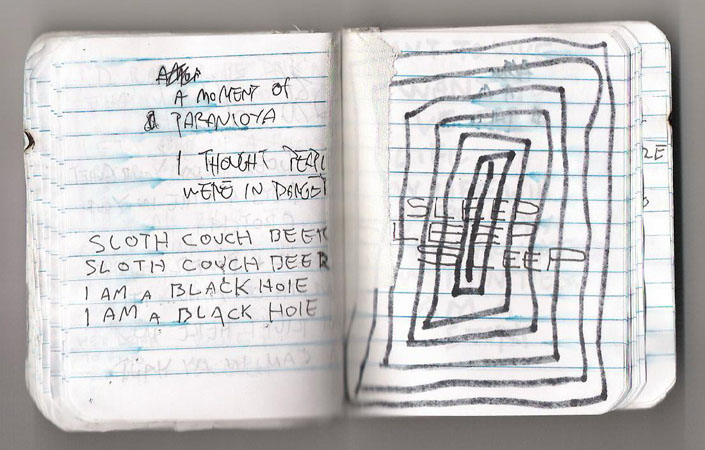 A MOMENT OF
PARANOYA
I THOUGHT
WERE IN DANGER
SLOTH COUCH BEER
SLOTH COUCH BEER
I AM A BLACK HOLE
I AM A BLACK HOLE
SLEEP
SLEEP